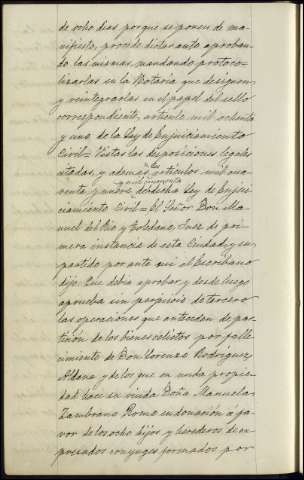 de ocho dias porque se ponen de ma-
nifiesto, procede dictar auto aproban-
do las mismas, mandando protoco-
lizarlas en la Notaría que designen
y reintegrarlas en el papel del sello
correspondiente, artículo mil ochenta
y uno de la Ley de Enjuiciamiento
Civil = Vistas las disposiciones legales
citadas, y además los artículos mil cua-
y mil cincuenta
renta y nueve, de dicha Ley de Enjui-
ciamiento Civil = El Señor Don Ma-
nuel del Rio y Toledano, Juez de pri-
mera instancia de esta Ciudad y su
partido por ante mí el Escribano
dijo: Que debia aprobar y desde luego
aprueba sin perjuicio de tercero
las operaciones que anteceden de par-
tición de los bienes relictos por falle-
cimiento de Don Lorenzo Rodriguez
Aldana y de los que en nuda propie-
dad hace su viuda Doña Manuela
Zambrano Romo en donación a fa-
vor de los ocho hijos y herederos de ex-
presados conyuges formados por